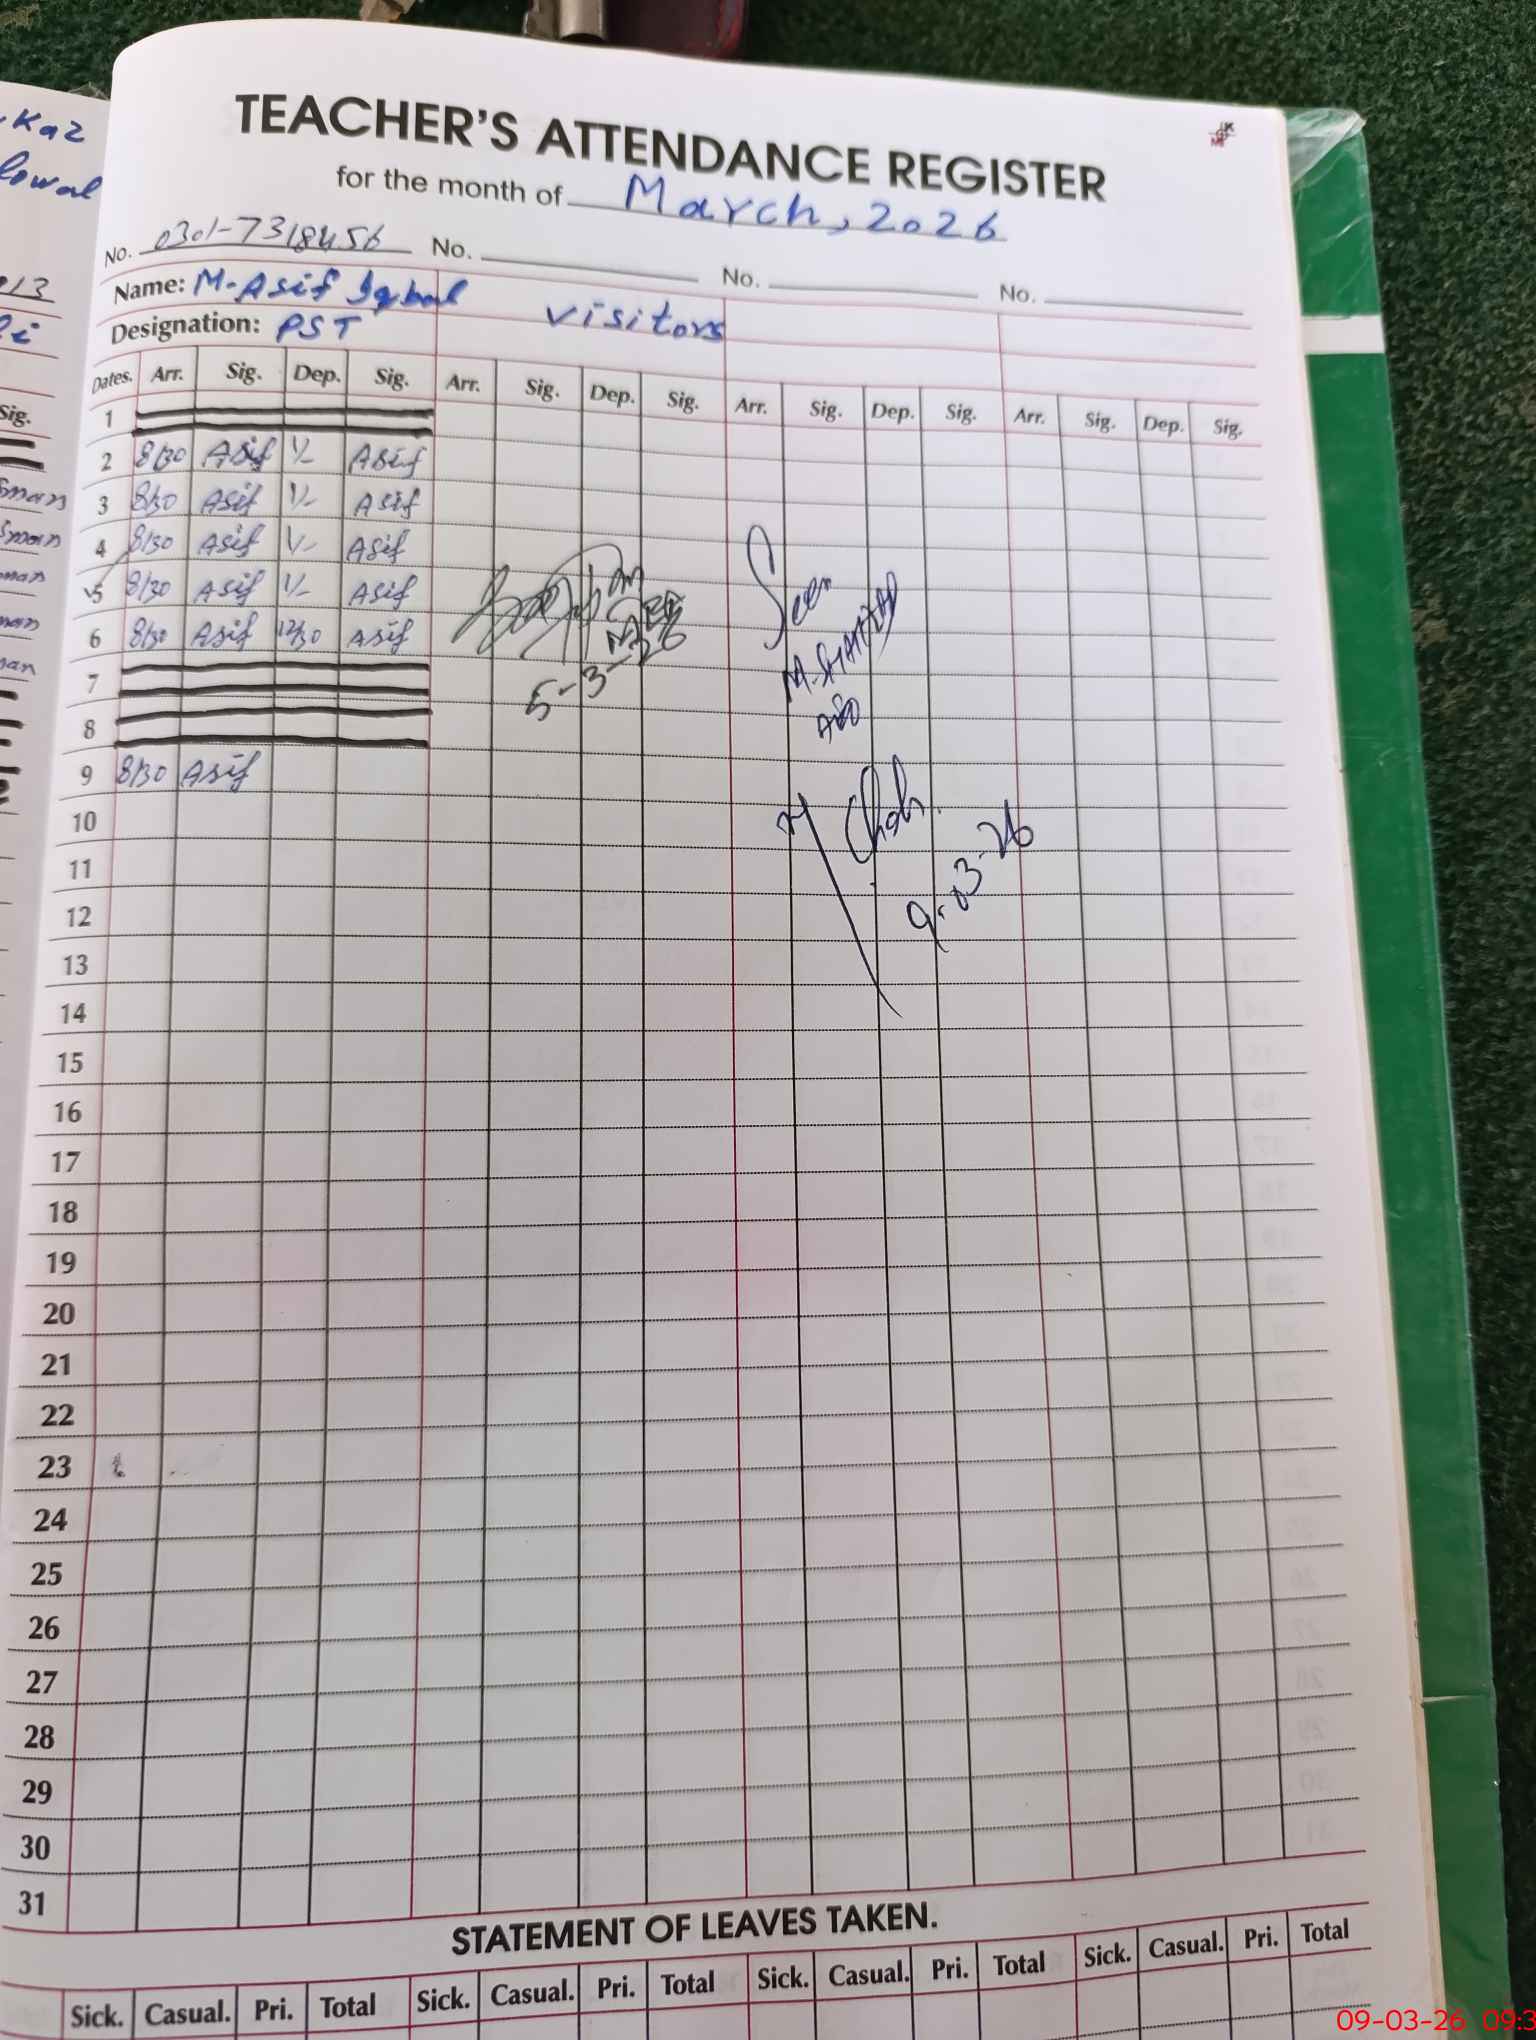 Kaz
lowal
TEACHER'S ATTENDANCE REGISTER
for the month of March, 2026
No. 0301-7318456 No. No. No.
Name: M-Asif Iqbal visitors
Designation: PST
Dates. Arr. Sig. Dep. Sig. Arr. Sig. Dep. Sig. Arr. Sig. Dep. Sig. Arr. Sig. Dep. Sig.
1
2 8/30 Asif 1/- Asif
3 8/30 Asif 1/- Asif
4 8/30 Asif 1/- Asif
5 8/30 Asif 1/- Asif
6 8/30 Asif 12/30 Asif
7
8
9 8/30 Asif
Seen
M. SHAHZAD
5-3-26
9-03-26
10
11
12
13
14
15
16
17
18
19
20
21
22
23
24
25
26
27
28
29
30
31
STATEMENT OF LEAVES TAKEN.
Sick. Casual. Pri. Total Sick. Casual. Pri. Total Sick. Casual. Pri. Total Sick. Casual. Pri. Total
09-03-26 09:3